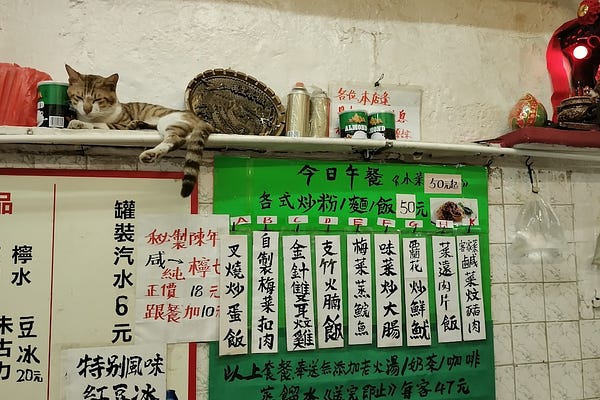 品
檸水
豆冰 20元
朱古力
罐裝汽水6元
秘製陳年
咸→純檸七
正價 18元
跟餐加10元
特別風味
紅豆冰
各位
ALMOND
今日午餐《小菜50元起》
各式炒粉/麵/飯50元
A 叉燒炒蛋飯
B 自製梅菜扣肉
C 金針雙耳炆雞
D 支竹火腩飯
E 梅菜蒸鯇魚
F 味菜炒大腸
G 蘭花炒鮮魷
H 菜遠肉片飯
K 客家鹹菜炆豬肉
以上套餐奉送無添加老火湯/奶茶/咖啡
蒸餾水《送完即止》每客47元